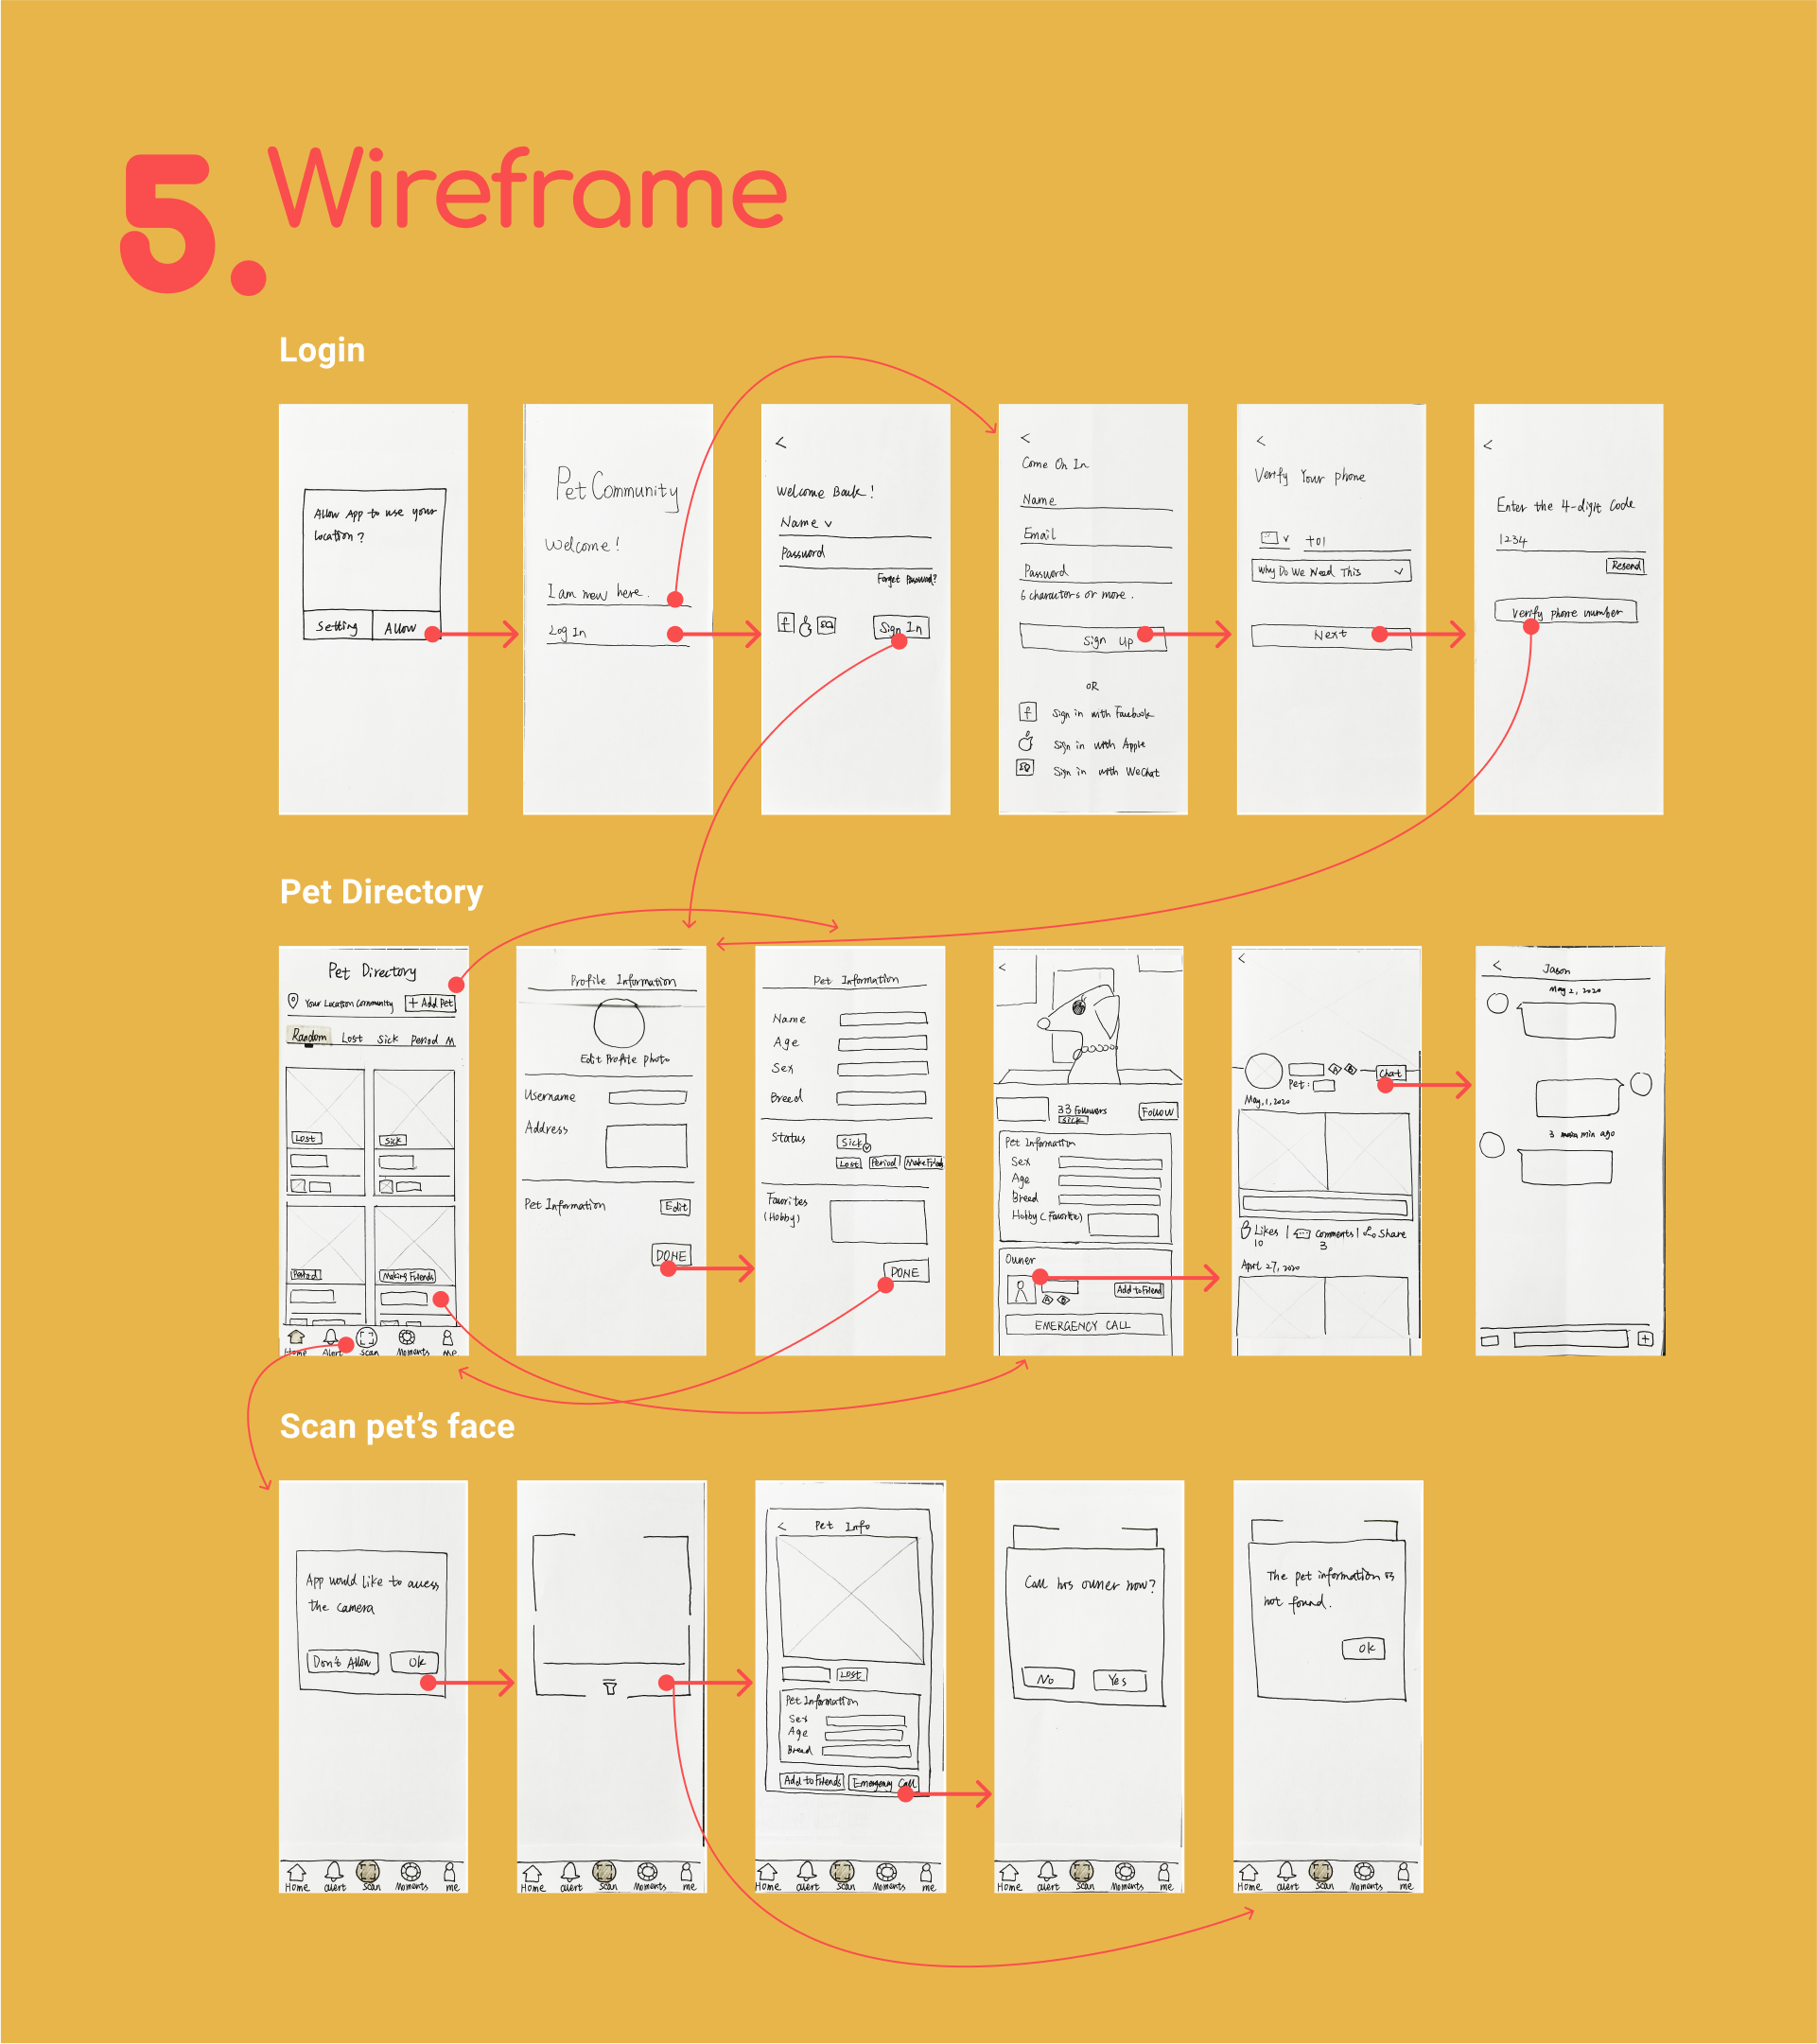 5. Wireframe
Login
Allow App to use your
Location?
Setting
Allow
Pet Community
Welcome!
I am new here.
Log In
<
Welcome Back!
Name v
Password
Forget Password?
f
Sign In
<
Come On In
Name
Email
Password
6 charactors or more.
Sign Up
OR
f Sign in with Facebook
Sign in with Apple
Sign in with WeChat
<
Verify Your phone
+01
Why Do We Need This
Next
<
Enter the 4-digit Code
1234
Resend
Verify phone number
Pet Directory
Pet Directory
Your Location Community
+ Add Pet
Random Lost Sick Period M
Lost
Sick
Period
Making Friends
Home Alert Scan Moments Me
Profile Information
Edit Profile photo
Username
Address
Pet Information
Edit
DONE
Pet Information
Name
Age
Sex
Breed
Status
Sick
Lost Period Make Friends
Favorites
(Hobby)
DONE
<
33 Followers
Sick
Follow
Pet Information
Sex
Age
Breed
Hobby (Favorite)
Owner
Add to Friend
EMERGENCY CALL
<
Chat
Pet:
May, 1, 2020
Likes | Comments | Share
10 3
April 27, 2020
<
Jason
May 2, 2020
3 min ago
+
Scan pet’s face
App would like to access
the camera
Don't Allow
Ok
Home alert Scan Moments me
Home alert Scan Moments me
<
Pet Info
Lost
Pet Information
Sex
Age
Breed
Add to Friends
Emergency Call
Home alert Scan Moments me
Call his owner now?
No
Yes
Home alert Scan Moments me
The pet information is
not found.
Ok
Home alert Scan Moments me